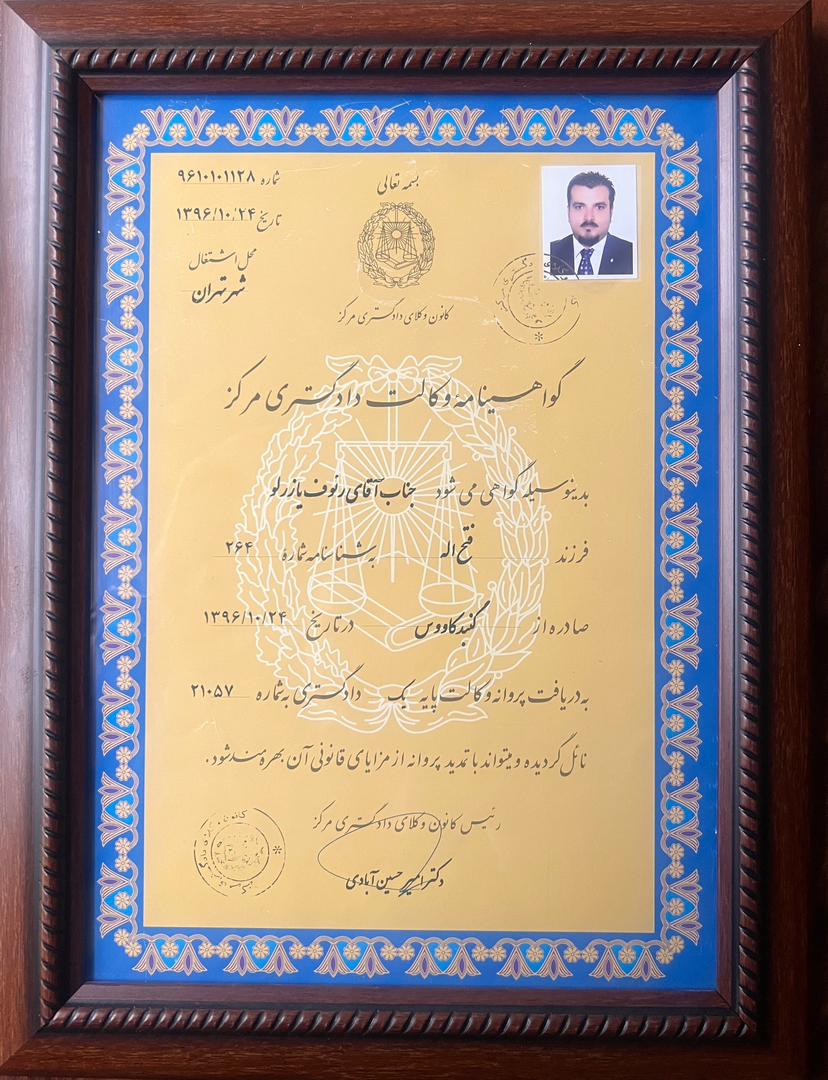 بسمه تعالی
شماره ۹۶۱۰۱۰۱۱۲۸
تاریخ ۱۳۹۶/۱۰/۲۴
محل اشتغال
شهر تهران
کانون وکلای دادگستری مرکز
گواهینامهٔ وکالت دادگستری مرکز
بدینوسیله گواهی می شود جناب آقای رئوف یازرلو
فرزند فتح اله به شناسنامه شماره ۲۶۴
صادره از گنبدکاووس در تاریخ ۱۳۹۶/۱۰/۲۴
به دریافت پروانه وکالت پایه یک دادگستری به شماره ۲۱۰۵۷
نائل گردیده و میتواند با تمدید پروانه از مزایای قانونی آن بهره مند شود.
رئیس کانون وکلای دادگستری مرکز
دکتر امیر حسین آبادی